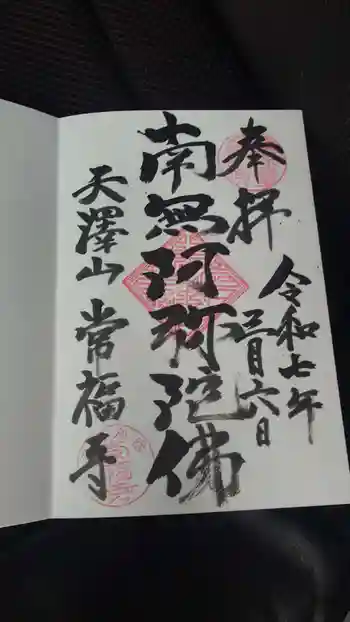 奉拝
令和七年
三月六日
南無阿弥陀佛
天澤山 常福寺